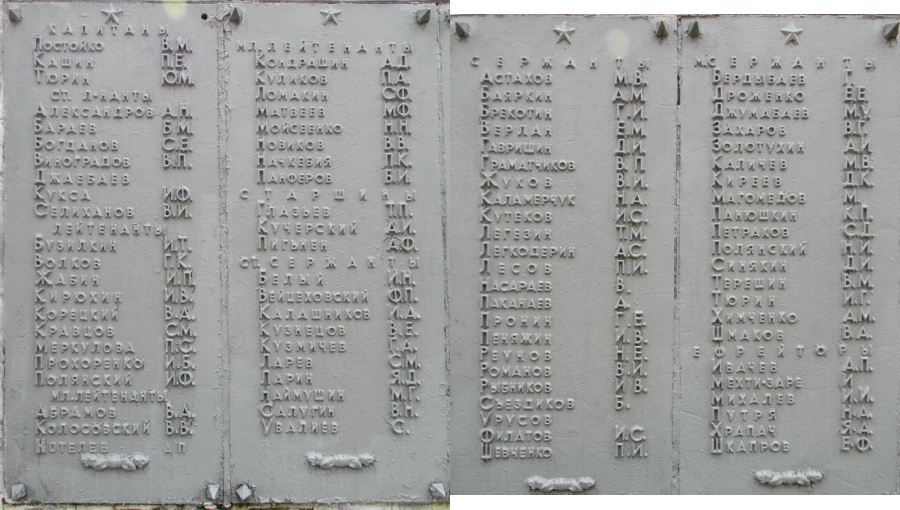 КАПИТАНЫ
ПОСТОЙКО В.М.
КАШИН П.Е.
ТЮРИН Ю.М.
СТ. Л-НАНТЫ
АЛЕКСАНДРОВ А.Н.
БАРАЕВ Б.М.
БОГДАНОВ С.Е.
ВИНОГРАДОВ В.П.
ДЖАЕБАЕВ
КУКСА И.Ф.
СЕЛИХАНОВ В.И.
ЛЕЙТЕНАНТЫ
БУЗИЛКИН И.Т.
ВОЛКОВ Г.К.
ЖАБИН И.П.
КИРЮХИН И.В.
КОРЕЦКИЙ В.А.
КРАВЦОВ С.М.
МЕРКУЛОВА П.С.
ПРОХОРЕНКО И.Б.
ПОЛЯНСКИЙ И.Ф.
МЛ.ЛЕЙТЕНАНТЫ
АБРАМОВ В.А.
КОЛОСОВСКИЙ В.В.
НОТЕЛЕВ А П
МЛ.ЛЕЙТЕНАНТЫ
КОНДРАШИН А.Д.
КУЛИКОВ П.А.
ЛОМАКИН С.Ф.
МАТВЕЕВ М.Ф.
МОЙСЕЕНКО Н.Н.
НОВИКОВ В.В.
ПАЧКЕРИЯ П.К.
ПАНФЕРОВ Б.И.
СТАРШИНЫ
ГЛАВЬЕВ Т.П.
КУЧЕРСКИЙ А.И.
ПИГЫНЕН А.Ф.
СТ. СЕРЖАНТЫ
БЕЛЫЙ И.Н.
ВЕЙЦЕХОВСКИЙ Ф.П.
КАЛАШНИКОВ И.А.
КУЗНЕЦОВ В.Е.
КУЗМИЧЕВ Г.А.
ЛАРЕВ С.М.
ЛАРИН Я.Д.
НАЙМУШИН М.Г.
САЛУГИН В.Н.
УВАЛИЕВ С.
СЕРЖАНТЫ
АСТАХОВ М.В.
БАЯРКИН А.М.
БРЕКОТИН Г.И.
ВЕРЛАН Е.М.
ГАВРИШИН Д.И.
ГРАМАТЧИКОВ В.П.
ЖУКОВ В.И.
КАЛАМЕРЧУК Н.А.
КУТЕКОВ И.С.
ЛЕГЕЗИН Т.М.
ЛЕГКОДЕРИН А.С.
ЛЕСОВ П.И.
НАСАРАЕВ
ПАКАНАЕВ
ПРОНИН
ПЕНЯЖИН
РЕУНОВ
РОМАНОВ
РЫБНИКОВ
СЪЕЗДИКОВ Б.
УРУСОВ
ФИЛАТОВ И.С.
ШЕВЧЕНКО П.И.
М.СЕРЖАНТЫ
БЕРДЫБАЕВ Г.
ДРОЖЕНКО Е.Е.
ДЖУМАБАЕВ М.У.
ЗАХАРОВ В.Г.
ЗОЛОТУХИН А.И.
КАЛИЧЕВ М.В.
КИРЕЕВ Д.К.
МАГОМЕДОВ М.
ПАНЮШКИН К.П.
ПЕТРАКОВ С.Д.
ПОЛЯНСКИЙ Н.И.
СИНЯКИН Д.И.
ТЕРЕШИН В.М.
ТЮРИН И.Г.
ХИМЧЕНКО А.М.
ШМАКОВ В.А.
ЕФРЕЙТОРЫ
ИВАЧЕВ А.П.
МЕХТИ-ЗАРЕ И
МИХАЛЕВ И.И.
ПУТРЯ Н.А.
ХРАПАЧ Я.А.
ШКАПРОВ Е.Ф.